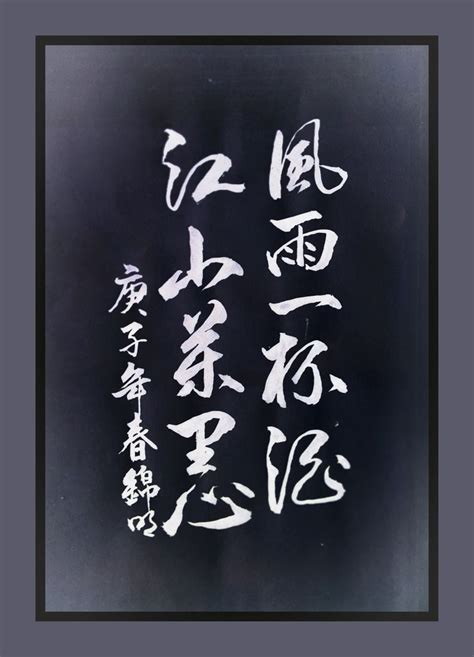 風雨一杯酒
江山萬里心
庚子年春錦明